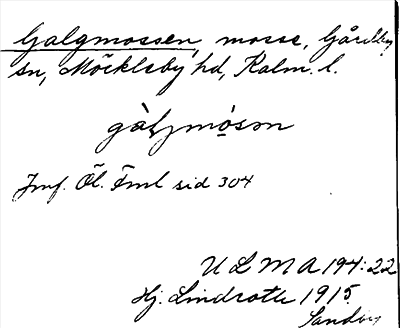 Galgmossen, mosse, Gårdby
sn, Möckleby hd, Kalm. l.
Jmf. Öl. Fml sid 304
U L M A 194:22
Hj. Lindroth 1915.